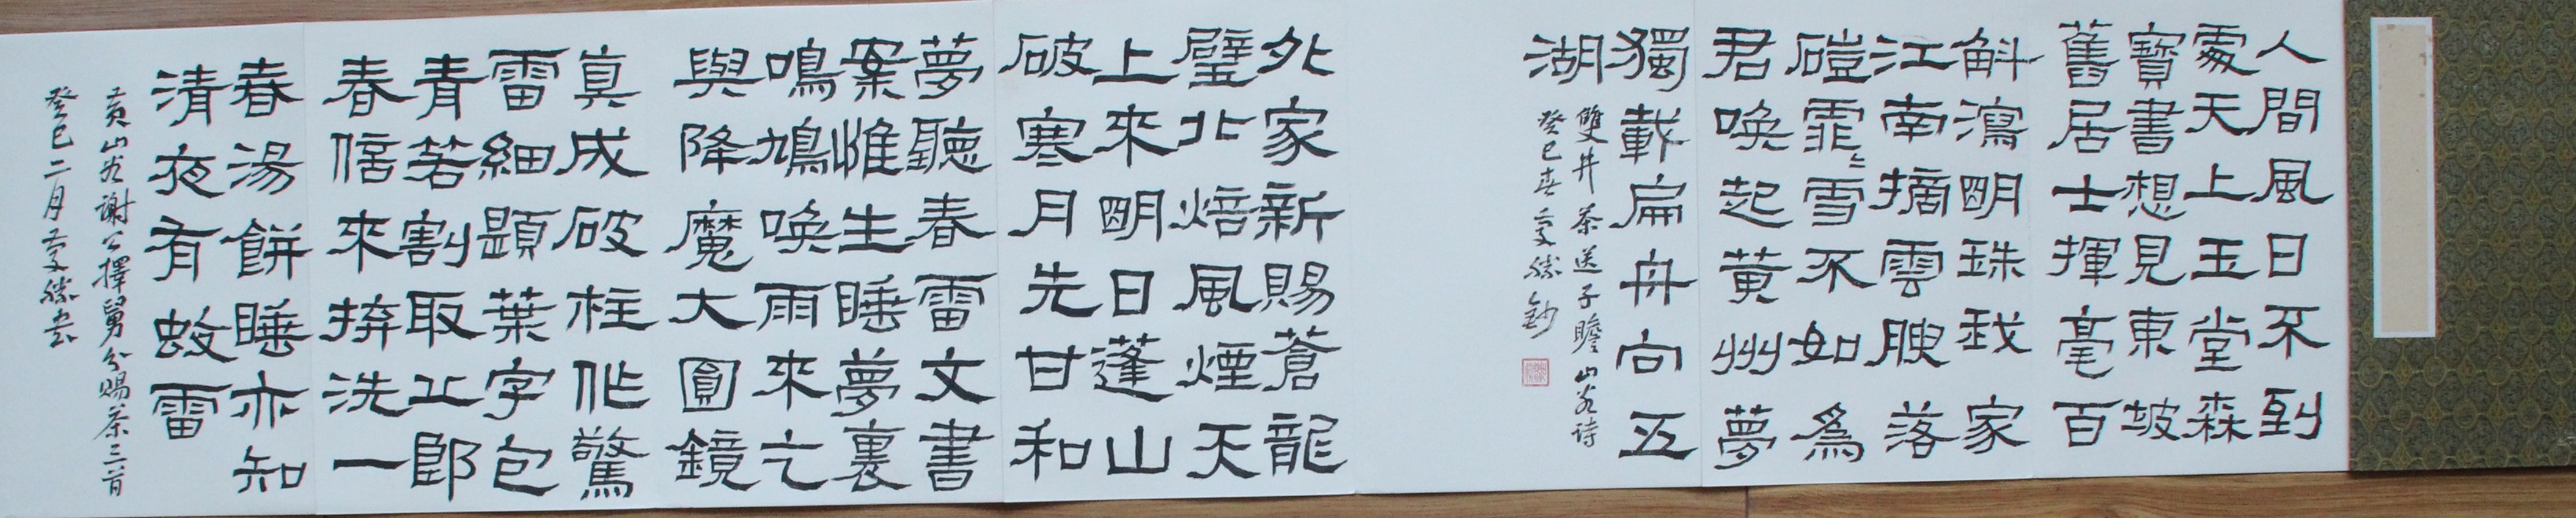 人間風日不到
處天上玉堂森
寶書想見東坡
舊居士揮毫百
斛瀉明珠我家
江南摘雲腴落
磑霏〻雪不如爲
君喚起黃州夢
獨載扁舟向五
湖
雙井茶送子瞻 山谷诗
癸巳春 鈔
外家新賜蒼龍
璧北焙風煙天
上來明日蓬山
破寒月先甘和
夢聽春雷文書
案惟生睡夢裏
鳴鳩喚雨來乞
與降魔大圓鏡
真成破柱作驚
雷細題葉字包
青若割取丘郎
春信來拚洗一
春湯餅睡亦知
清夜有蚊雷
黄山谷謝公擇舅分賜茶三首
癸巳二月 书